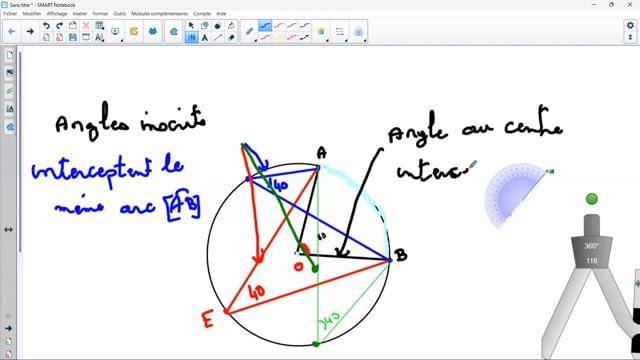 Sans titre * - SMART Notebook
Fichier Modifier Affichage Insérer Format Outils Modules complémentaires Compte Aide
Angles inscrits
interceptent le
même arc [AB]
Angle au centre
interc
A
40
B
O
40
E
40
360°
116